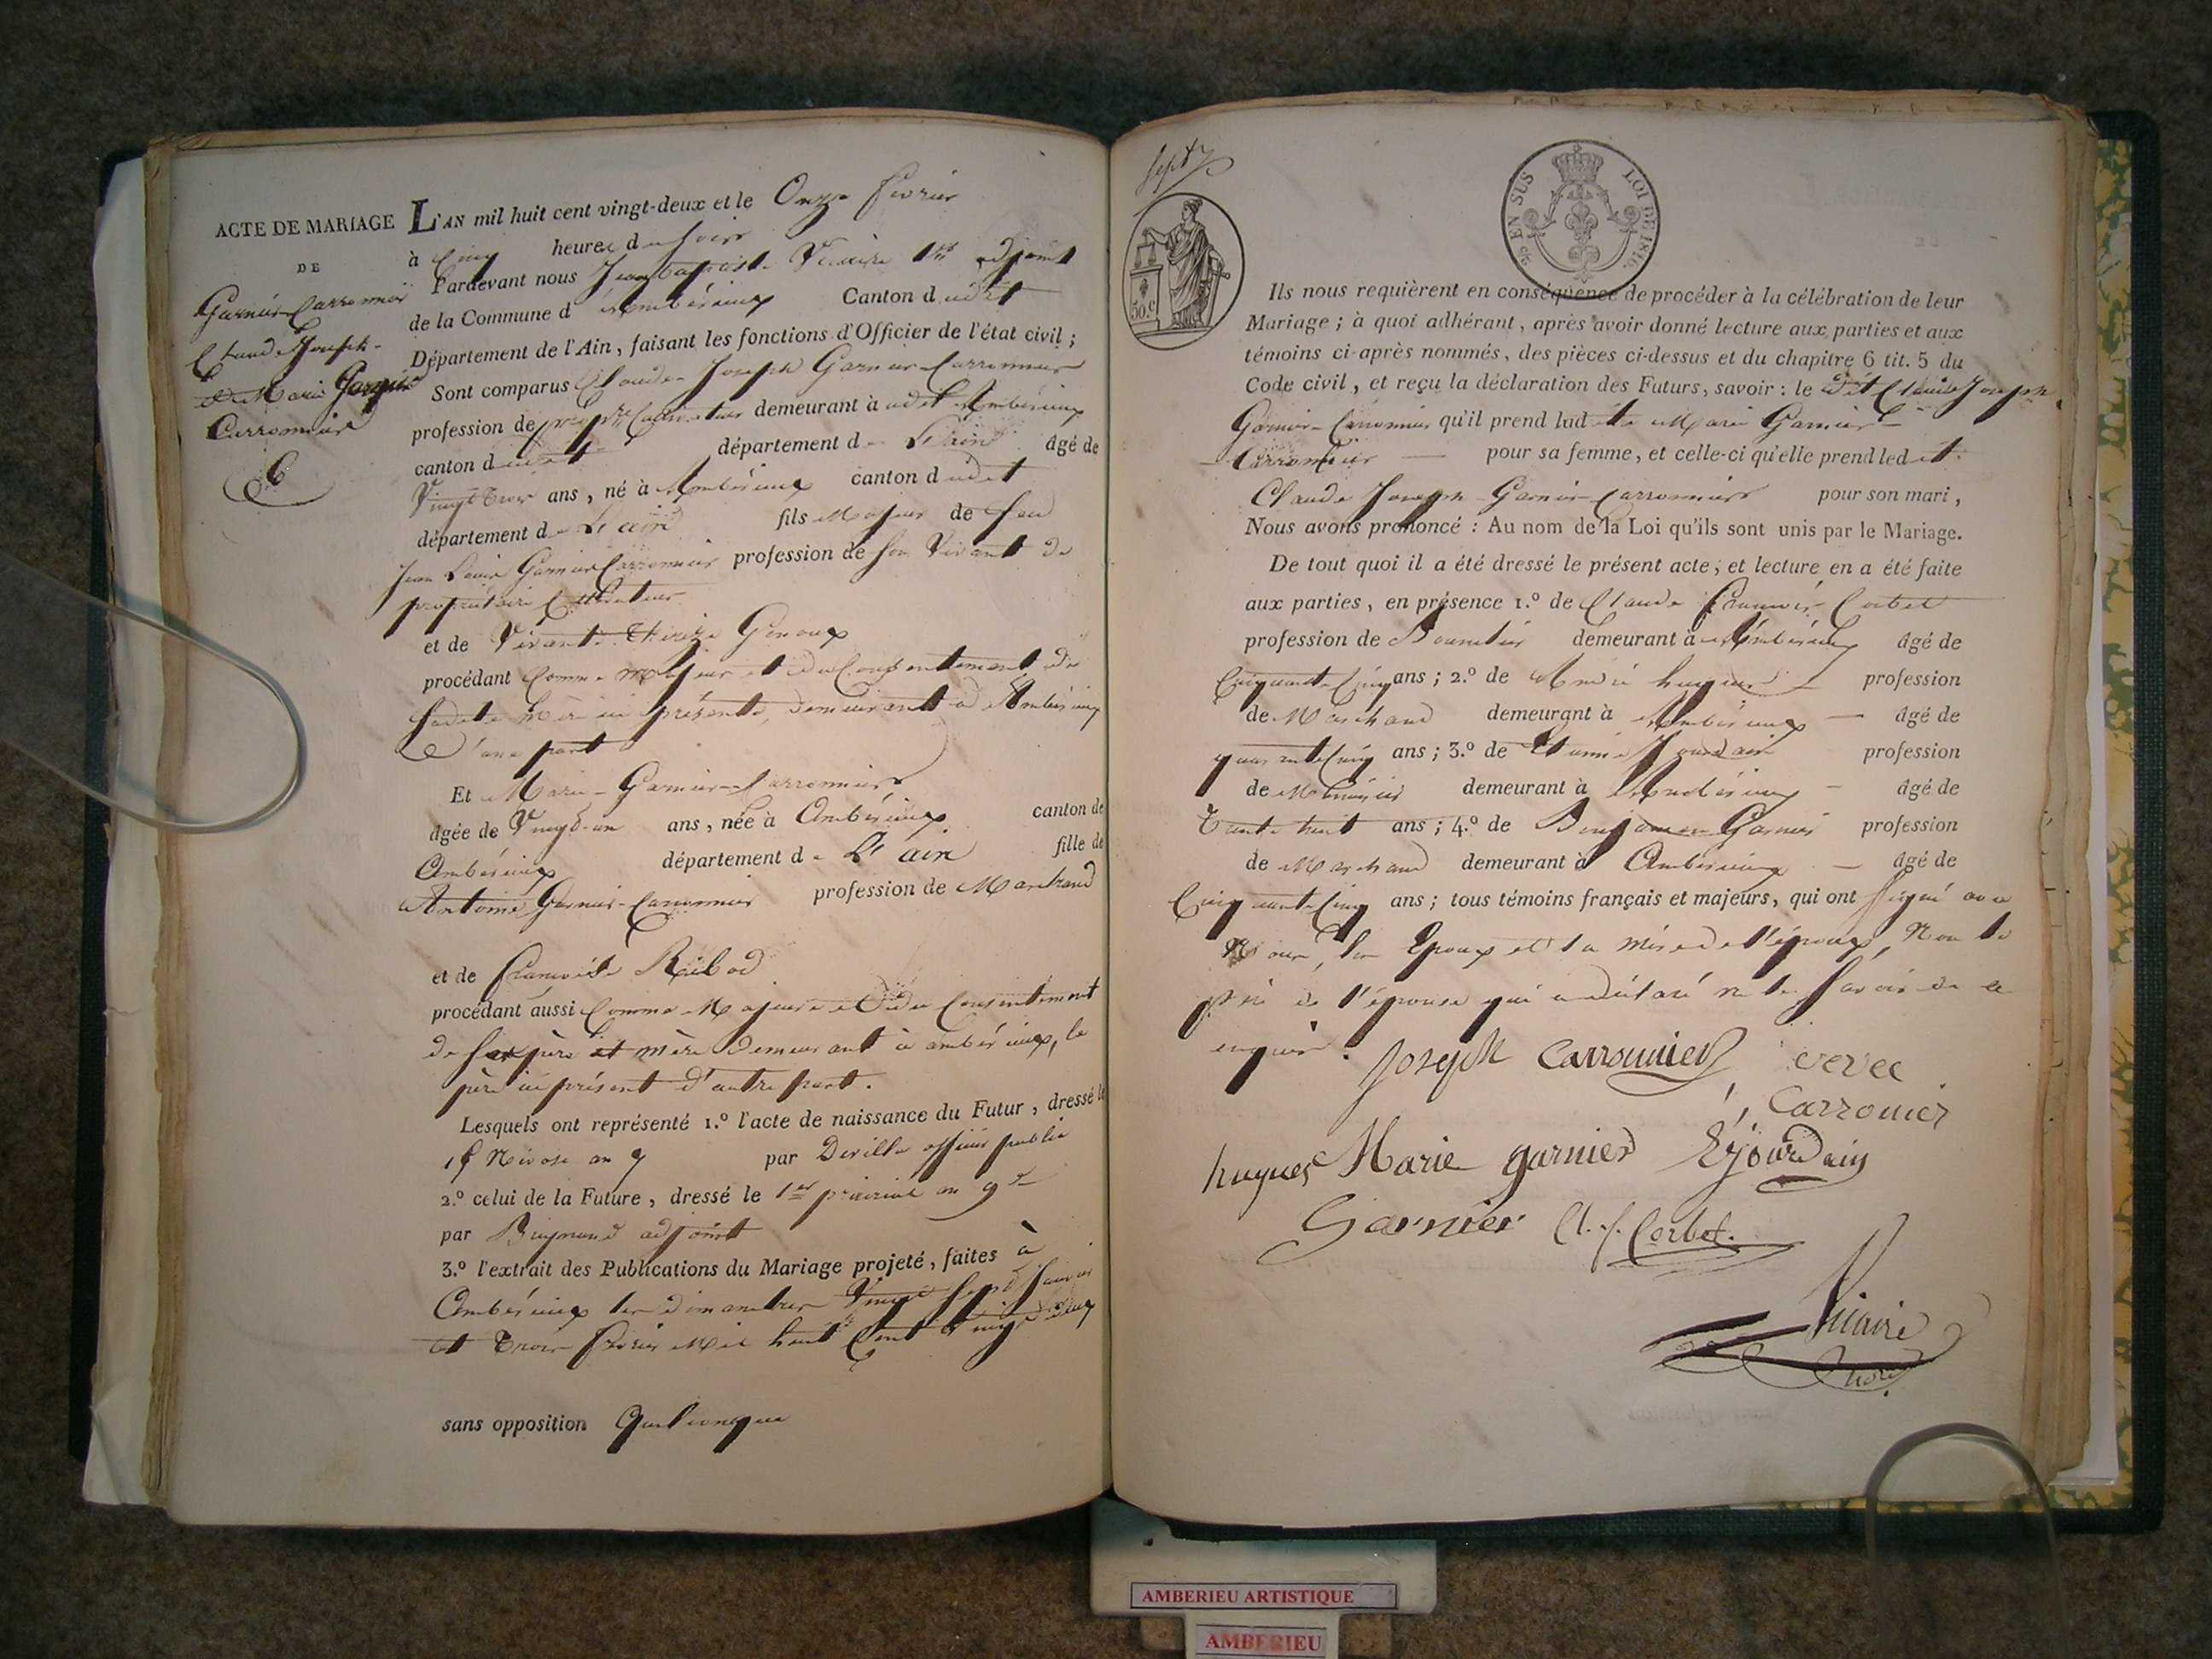 ACTE DE MARIAGE
DE
Garnier Carronnier
Claude Joseph
et Marie Garnier
Carronnier
6
L'AN mil huit cent vingt-deux et le Onze février
à Cinq heures du soir
Pardevant nous Jean Baptiste Vicaire 1er adjoint
de la Commune d'Ambérieux Canton dudit
Département de l'Ain, faisant les fonctions d'Officier de l'état civil ;
Sont comparus Claude Joseph Garnier Carronnier
profession de propre Cultivateur demeurant à udit Ambérieux
canton dudit département de L'ain âgé de
Vingt trois ans, né à Ambérieux canton dudit
département de L'ain fils Majeur de feu
Jean Louis Garnier Carronnier profession de son Vivant de
propriétaire Cultivateur
et de Vivante Thérèze Genoux
procédant Comme Majeur et du Consentement de
sadite Mère ici présente, demeurant à Ambérieux
D'une part
Et Marie Garnier-Carronnier
âgée de Vingt-un ans, née à Ambérieux canton de
Ambérieux département de L'ain fille de
Antoine Garnier-Carronnier profession de Marchand
et de Françoise Ribod
procédant aussi Comme Majeure et du Consentement
de ses père et mère demeurant à ambérieux, le
père ici présent d'autre part.
Lesquels ont représenté 1.º l'acte de naissance du Futur, dressé le
Nivose an 7 par Deville officier public
2.º celui de la Future, dressé le 1er prairial an 9
par adjoint
3.º l'extrait des Publications du Mariage projeté, faites à
Ambérieux les dimanches Vingt sept Janvier
et Trois février Mil huit Cent Vingt deux
sans opposition Quelconque
sept
50.c
EN SUS LOI DE 1816.
Ils nous requièrent en conséquence de procéder à la célébration de leur
Mariage ; à quoi adhérant, après avoir donné lecture aux parties et aux
témoins ci-après nommés, des pièces ci-dessus et du chapitre 6 tit. 5 du
Code civil, et reçu la déclaration des Futurs, savoir : le dit Claude Joseph
Garnier-Carronnier qu'il prend ladite Marie Garnier
Carronnier pour sa femme, et celle-ci qu'elle prend ledit
Claude Joseph Garnier-Carronnier pour son mari,
Nous avons prononcé : Au nom de la Loi qu'ils sont unis par le Mariage.
De tout quoi il a été dressé le présent acte, et lecture en a été faite
aux parties, en présence 1.º de Claude François Corbet
profession de demeurant à Ambérieux âgé de
Cinquante Cinq ans ; 2.º de André hugues profession
de Marchand demeurant à Ambérieux âgé de
quarante Cinq ans ; 3.º de Etienne Jourdain profession
de Menuisier demeurant à Ambérieux âgé de
Trente huit ans ; 4.º de Benjamin Garnier profession
de Marchand demeurant à Ambérieux âgé de
Cinquante Cinq ans ; tous témoins français et majeurs, qui ont signé avec
Nous, les Epoux et la mère de l'époux, Non le
père de l'épouse qui a déclaré ne le savoir de ce
enquis.
Joseph Carronnier vevee
Carronier
hugues Marie garnier Ejourdain
Garnier Cl. f. Corbet.
Vicaire